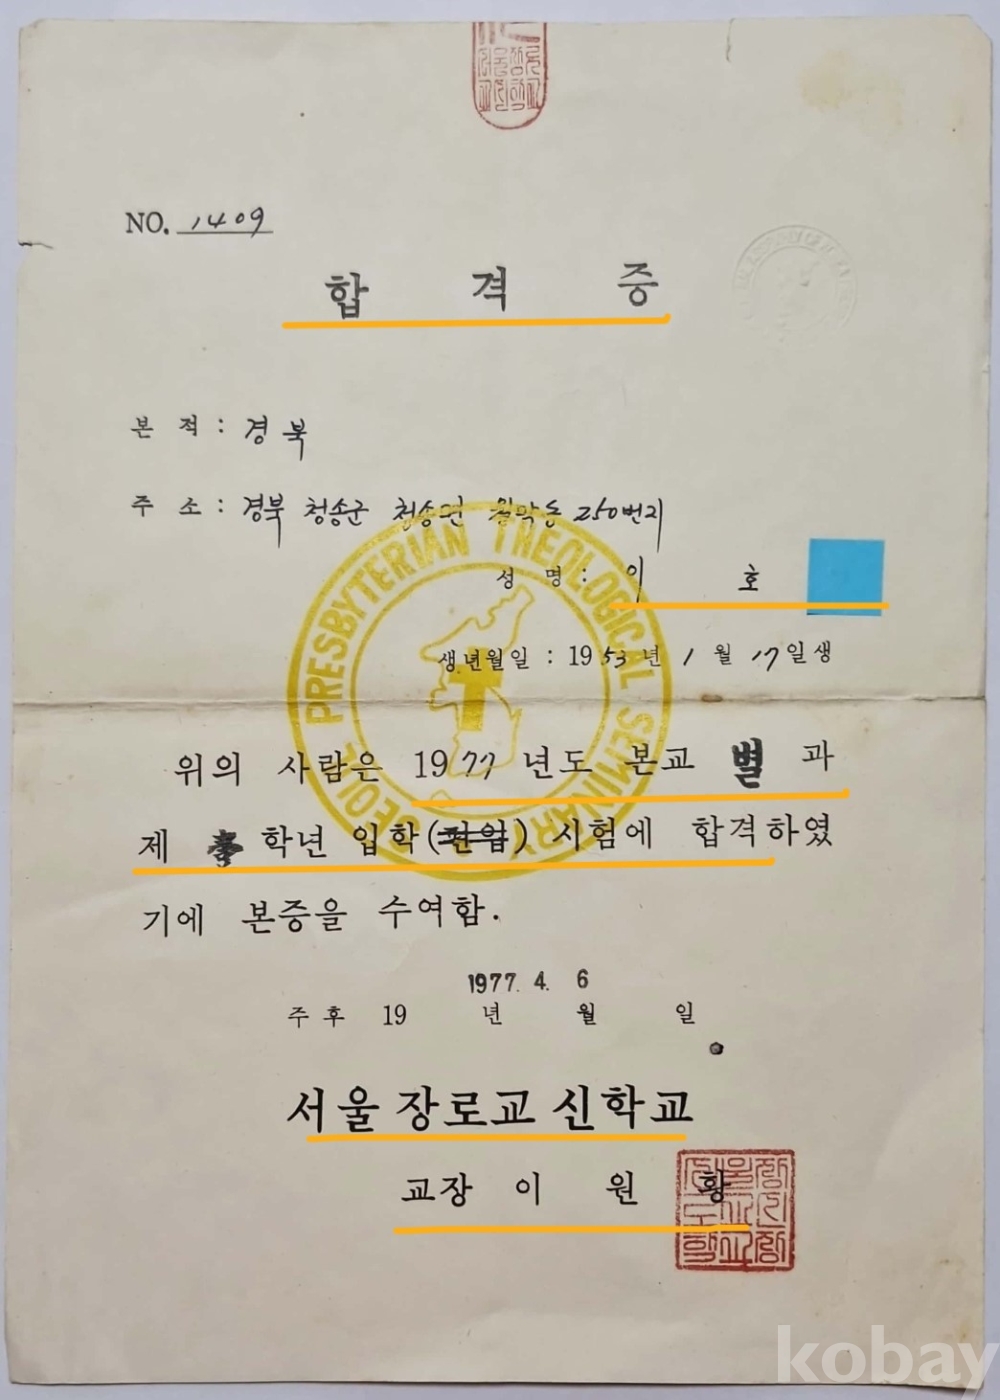 NO. 1409
합 격 증
본 적 : 경북
주 소 : 경북 청송군 청송면 월막동 250번지
성 명 : 이 호
생년월일 : 1953년 1월 17일생
PRESBYTERIAN THEOLOGICAL SEMINARY SEOUL
위의 사람은 1977년도 본교 별과
제 학년 입학(편입) 시험에 합격하였
기에 본증을 수여함.
1977. 4. 6
주후 19 년 월 일
서울 장로교 신학교
교장 이 원 황
kobay